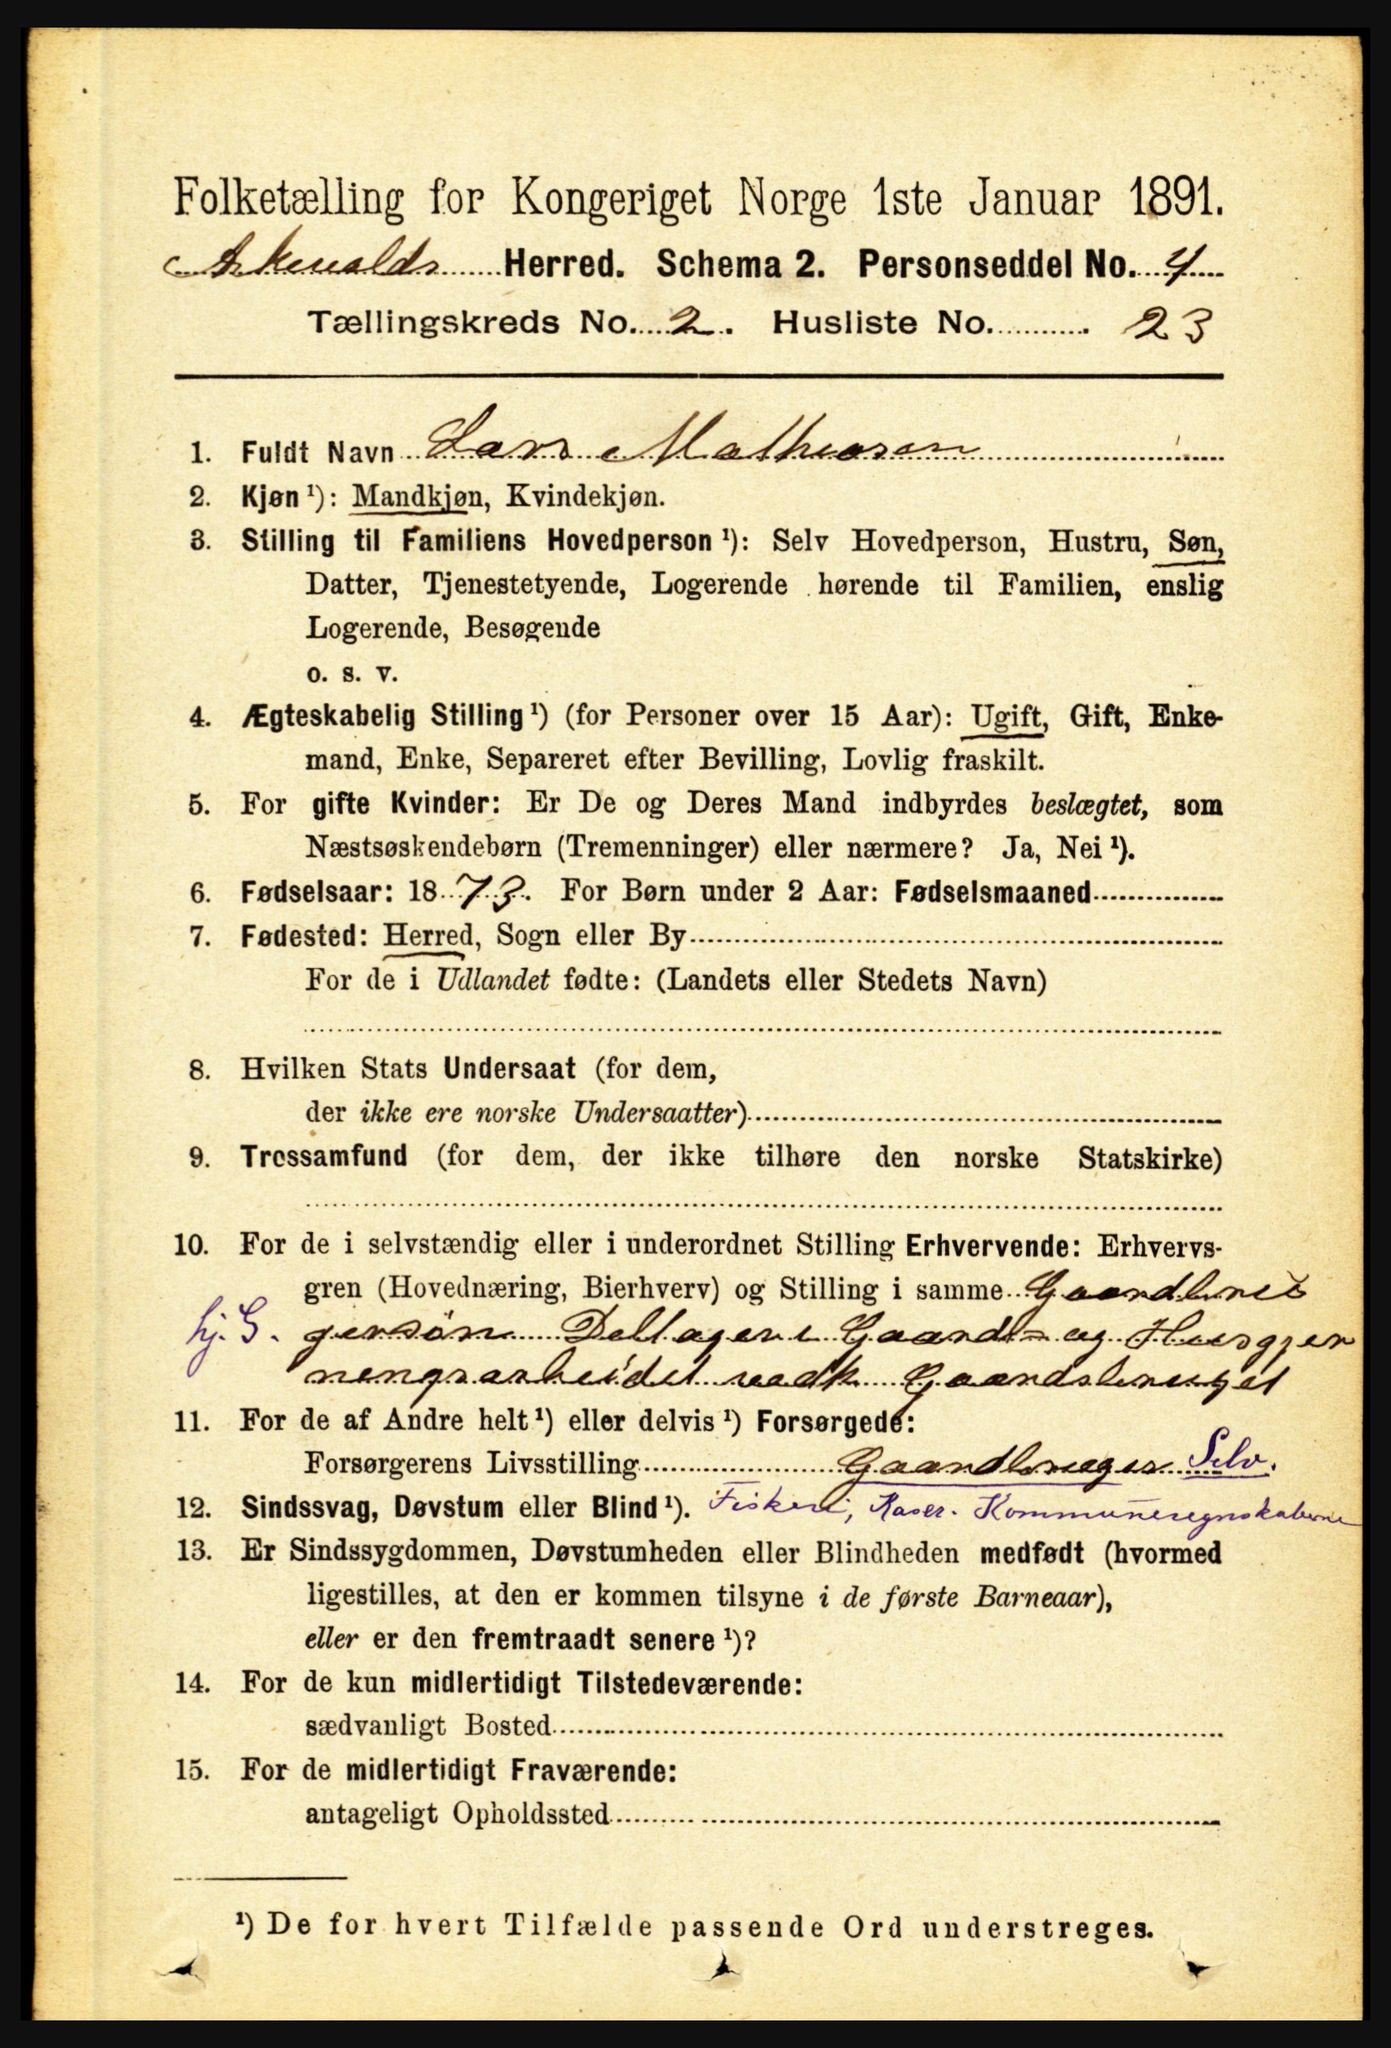 Folketælling for Kongeriget Norge 1ste Januar 1891.
Askvolds Herred. Schema 2. Personseddel No. 4
Tællingskreds No. 2. Husliste No. 23
1. Fuldt Navn Lars Mathiasen
2. Kjøn ¹): Mandkjøn, Kvindekjøn.
3. Stilling til Familiens Hovedperson ¹): Selv Hovedperson, Hustru, Søn,
Datter, Tjenestetyende, Logerende hørende til Familien, enslig
Logerende, Besøgende
o. s. v.
4. Ægteskabelig Stilling ¹) (for Personer over 15 Aar): Ugift, Gift, Enke-
mand, Enke, Separeret efter Bevilling, Lovlig fraskilt.
5. For gifte Kvinder: Er De og Deres Mand indbyrdes beslægtet, som
Næstsøskendebørn (Tremenninger) eller nærmere? Ja, Nei ¹).
6. Fødselsaar: 1873. For Børn under 2 Aar: Fødselsmaaned
7. Fødested: Herred, Sogn eller By
For de i Udlandet fødte: (Landets eller Stedets Navn)
8. Hvilken Stats Undersaat (for dem,
der ikke ere norske Undersaatter)
9. Trossamfund (for dem, der ikke tilhøre den norske Statskirke)
10. For de i selvstændig eller i underordnet Stilling Erhvervende: Erhvervs-
gren (Hovednæring, Bierhverv) og Stilling i samme Gaardbru
hj. G. gersøn Deltager i Gaards- og Husgjer
ningsarbeidet Gaardsbruget
11. For de af Andre helt ¹) eller delvis ¹) Forsørgede:
Forsørgerens Livsstilling Gaardbruger Selv.
12. Sindssvag, Døvstum eller Blind ¹). Fiskeri, Kommuneregnskaberne
13. Er Sindssygdommen, Døvstumheden eller Blindheden medfødt (hvormed
ligestilles, at den er kommen tilsyne i de første Barneaar),
eller er den fremtraadt senere ¹)?
14. For de kun midlertidigt Tilstedeværende:
sædvanligt Bosted
15. For de midlertidigt Fraværende:
antageligt Opholdssted
¹) De for hvert Tilfælde passende Ord understreges.